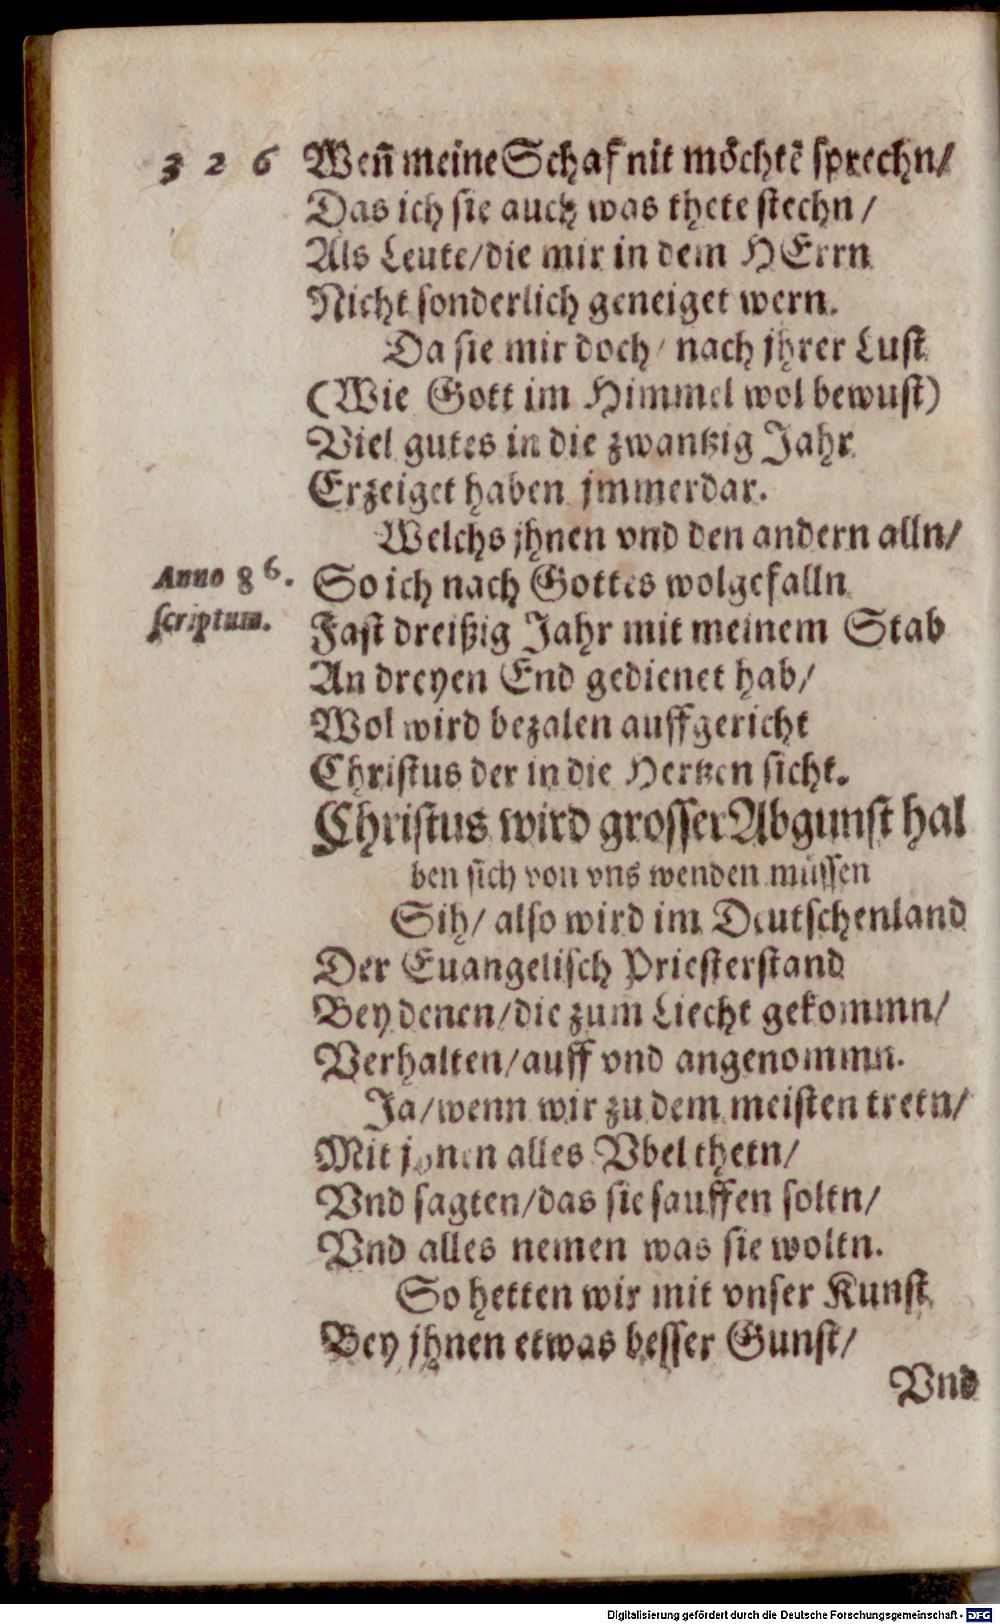 3 2 6 Weñ meine Schaf nit möchtẽ sprechn/
Das ich sie auch was thete stechn/
Als Leute/die mir in dem HErrn
Nicht sonderlich geneiget wern.
Da sie mir doch/ nach jhrer Lust
(Wie Gott im Himmel wol bewust)
Viel gutes in die zwantzig Jahr
Erzeiget haben jmmerdar.
Welchs jhnen vnd den andern alln/
Anno 86. So ich nach Gottes wolgefalln
scriptum. Fast dreißig Jahr mit meinem Stab
An dreyen End gedienet hab/
Wol wird bezalen auffgericht
Christus der in die Hertzen sicht.
Christus wird grosser Abgunst hal
ben sich von vns wenden müssen
Sih/ also wird im Deutschenland
Der Euangelisch Priesterstand
Bey denen/die zum Liecht gekommn/
Verhalten/auff vnd angenommn.
Ja/wenn wir zu dem meisten tretn/
Mit jhnen alles Vbel thetn/
Vnd sagten/das sie sauffen soltn/
Vnd alles nemen was sie woltn.
So hetten wir mit vnser Kunst
Bey jhnen etwas besser Gunst/
Vnd
Digitalisierung gefördert durch die Deutsche Forschungsgemeinschaft - DFG